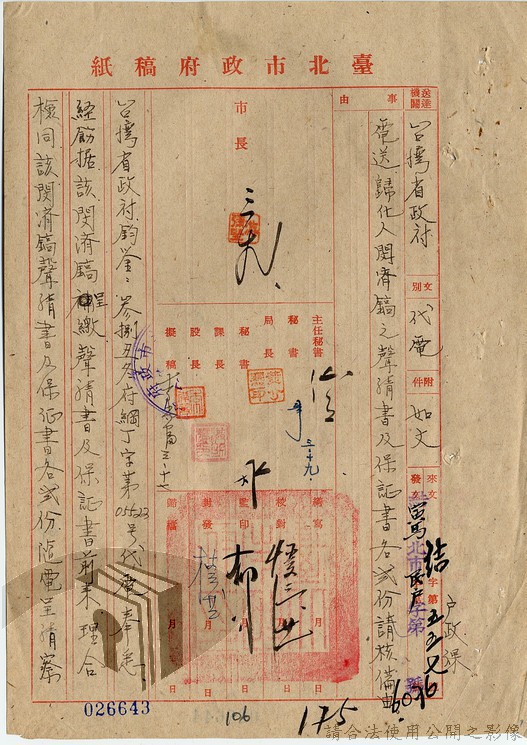 臺北市政府稿紙
送達機關
台灣省政府
文別
代電
附件
如文
事由
電送歸化人閔濟鎬之聲請書及保証書各貳份請核備由
來文
發文
字第
號
市長
主任秘書
秘書
局長
秘書
課長
股長
擬稿
三、十九、
繕寫
校對
監印
封發
歸檔
月
日
台灣省政府鈞鑒：參捌五冬府綱丁字第05523號代電奉悉
経飭据該閔濟鎬補呈繳聲請書及保証書前来理合
檢同該閔濟鎬聲請書及保証書各貳份隨電呈請察
戶政課
6036
026643
106
175
請合法使用公開之影像